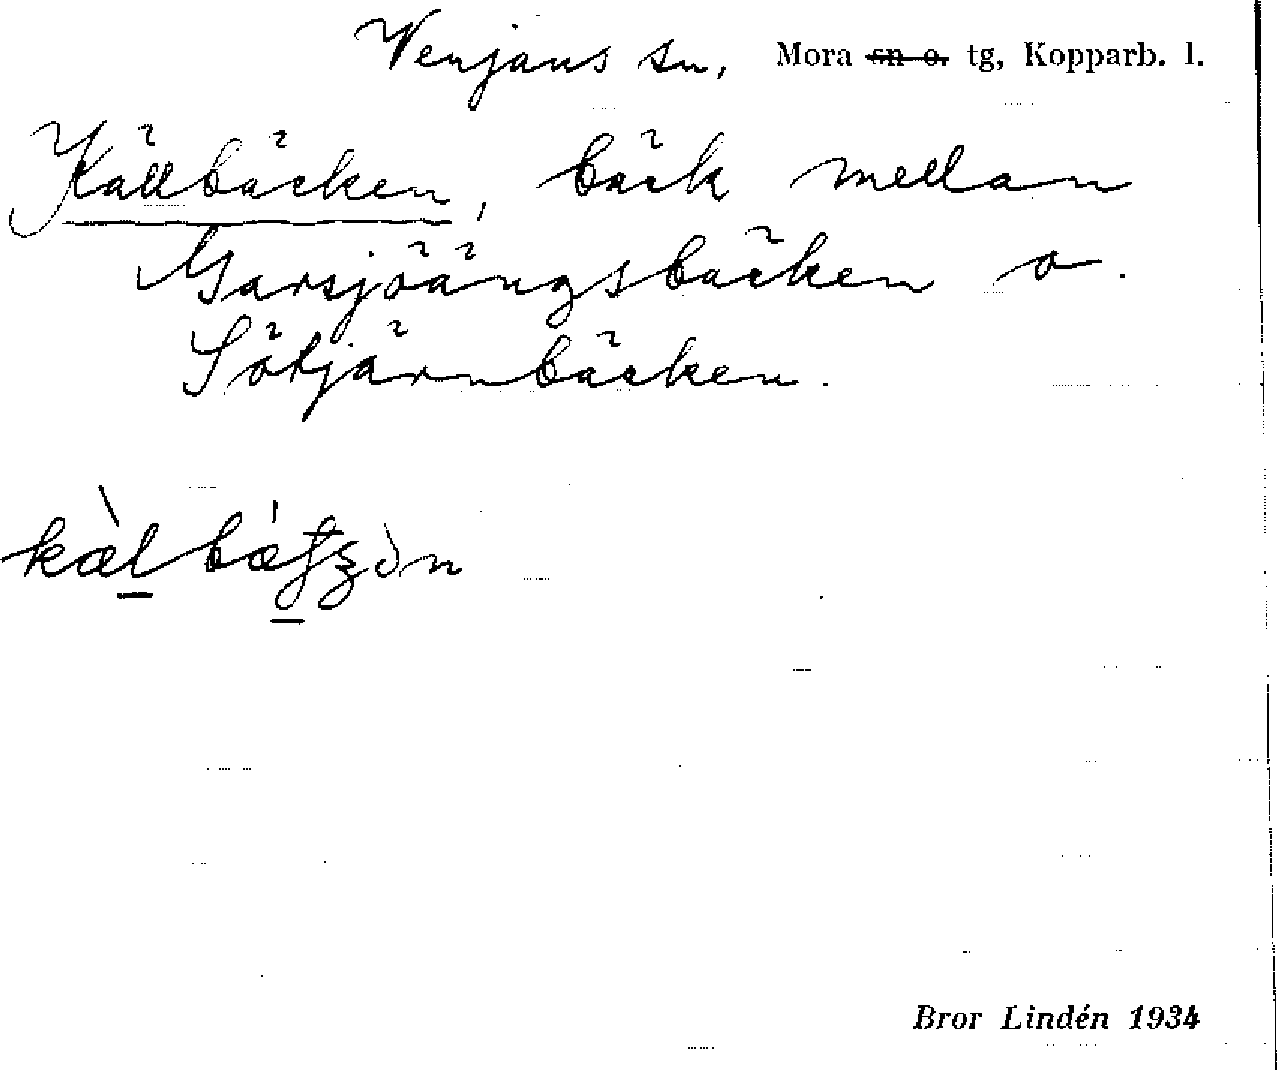 Venjans sn, Mora sn o. tg, Kopparb. l.
Källbäcken, bäck mellan
Garsjöängsbäcken o.
Sötjärnbäcken.
Bror Lindén 1934